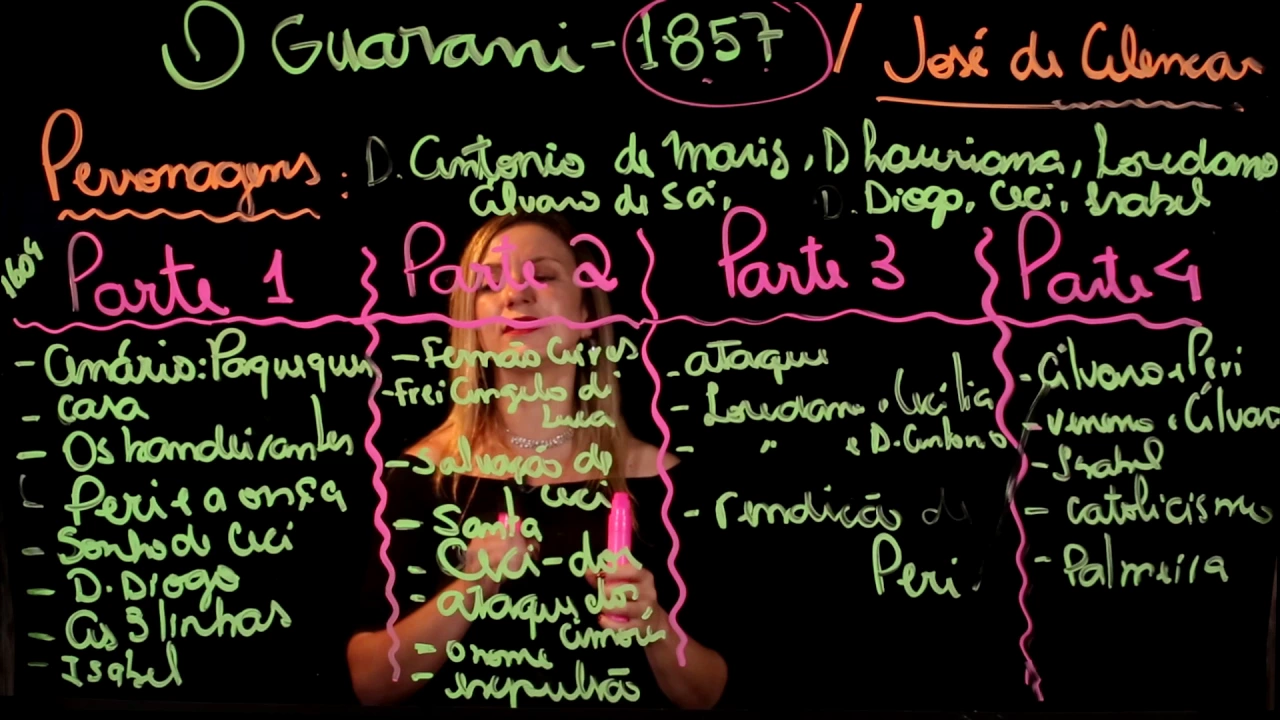 O Guarani - 1857 / José de Alencar
Personagens: D. Antonio de Mariz, D Lauriana, Loredano
Alvaro de Sá, D. Diogo, Ceci, Isabel
1604
Parte 1
- Cenário: Paquequer
- casa
- Os bandeirantes
- Peri e a onça
- Sonho de Ceci
- D. Diogo
- As 3 linhas
- Isabel
Parte 2
- Fernão Aires
- Frei Angelo di
Luca
- Salvação de
Ceci
- Santa
- Ceci - dor
- ataque dos
aimorés
- o nome
- expulsão
Parte 3
- ataque
- Loredano e Cecília
- " e D. Antonio
- rendição de
Peri
Parte 4
- Álvaro e Peri
- veneno e Álvaro
- Isabel
- catolicismo
- Palmeira